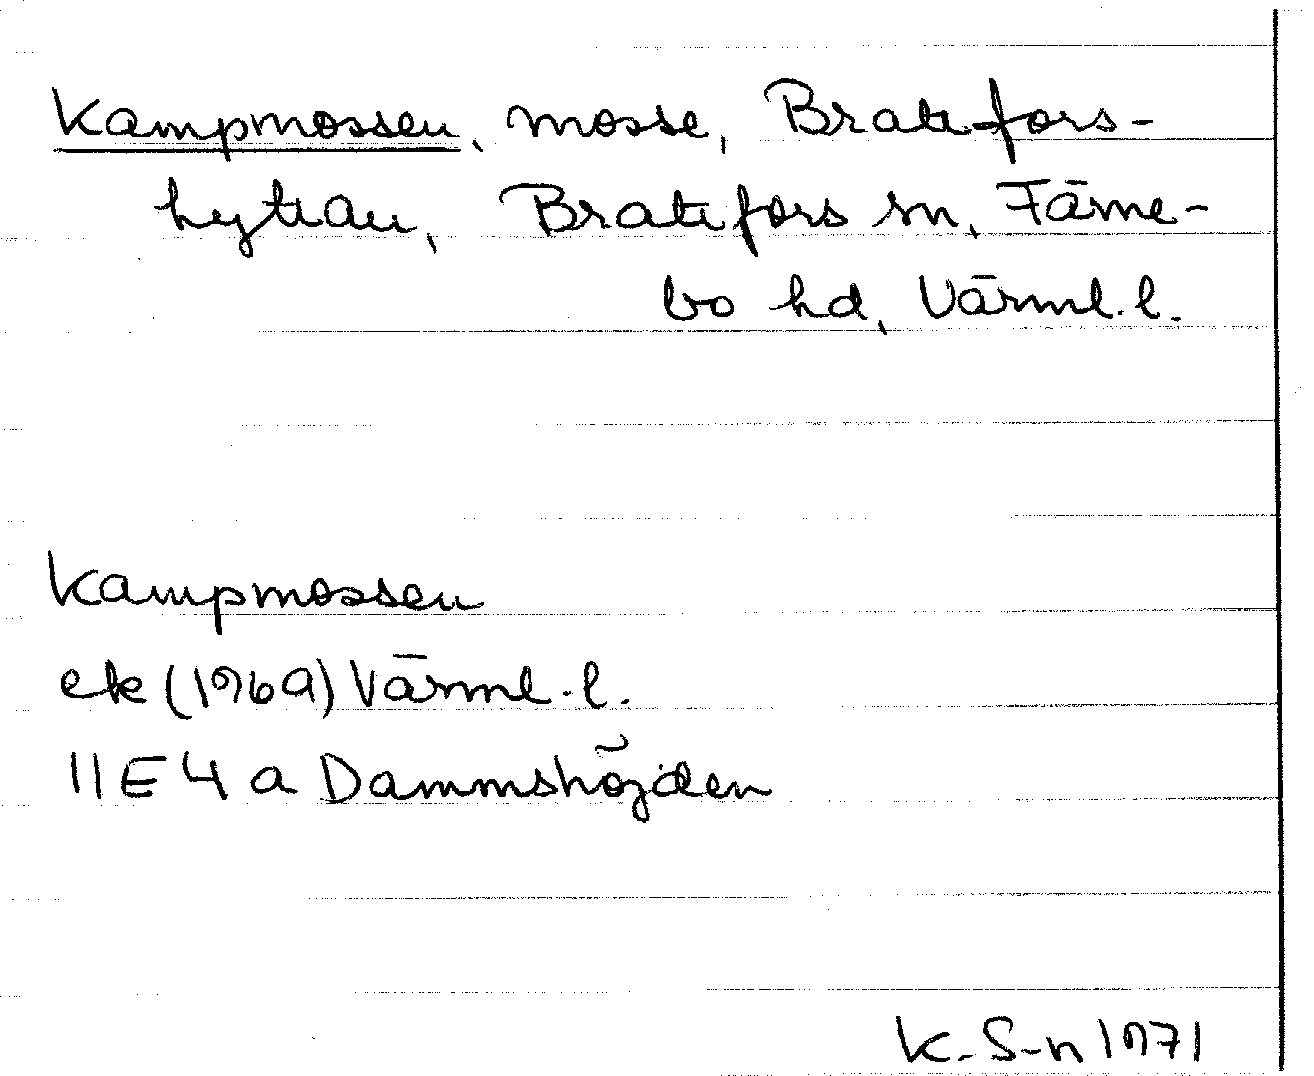 Kampmossen, mosse, Bratefors-
hyttan, Bratefors sn, Färne-
bo hd, Värml. l.
Kampmossen
ek (1969) Värml. l.
11E 4 a Dammshöjden
K. S-n 1971